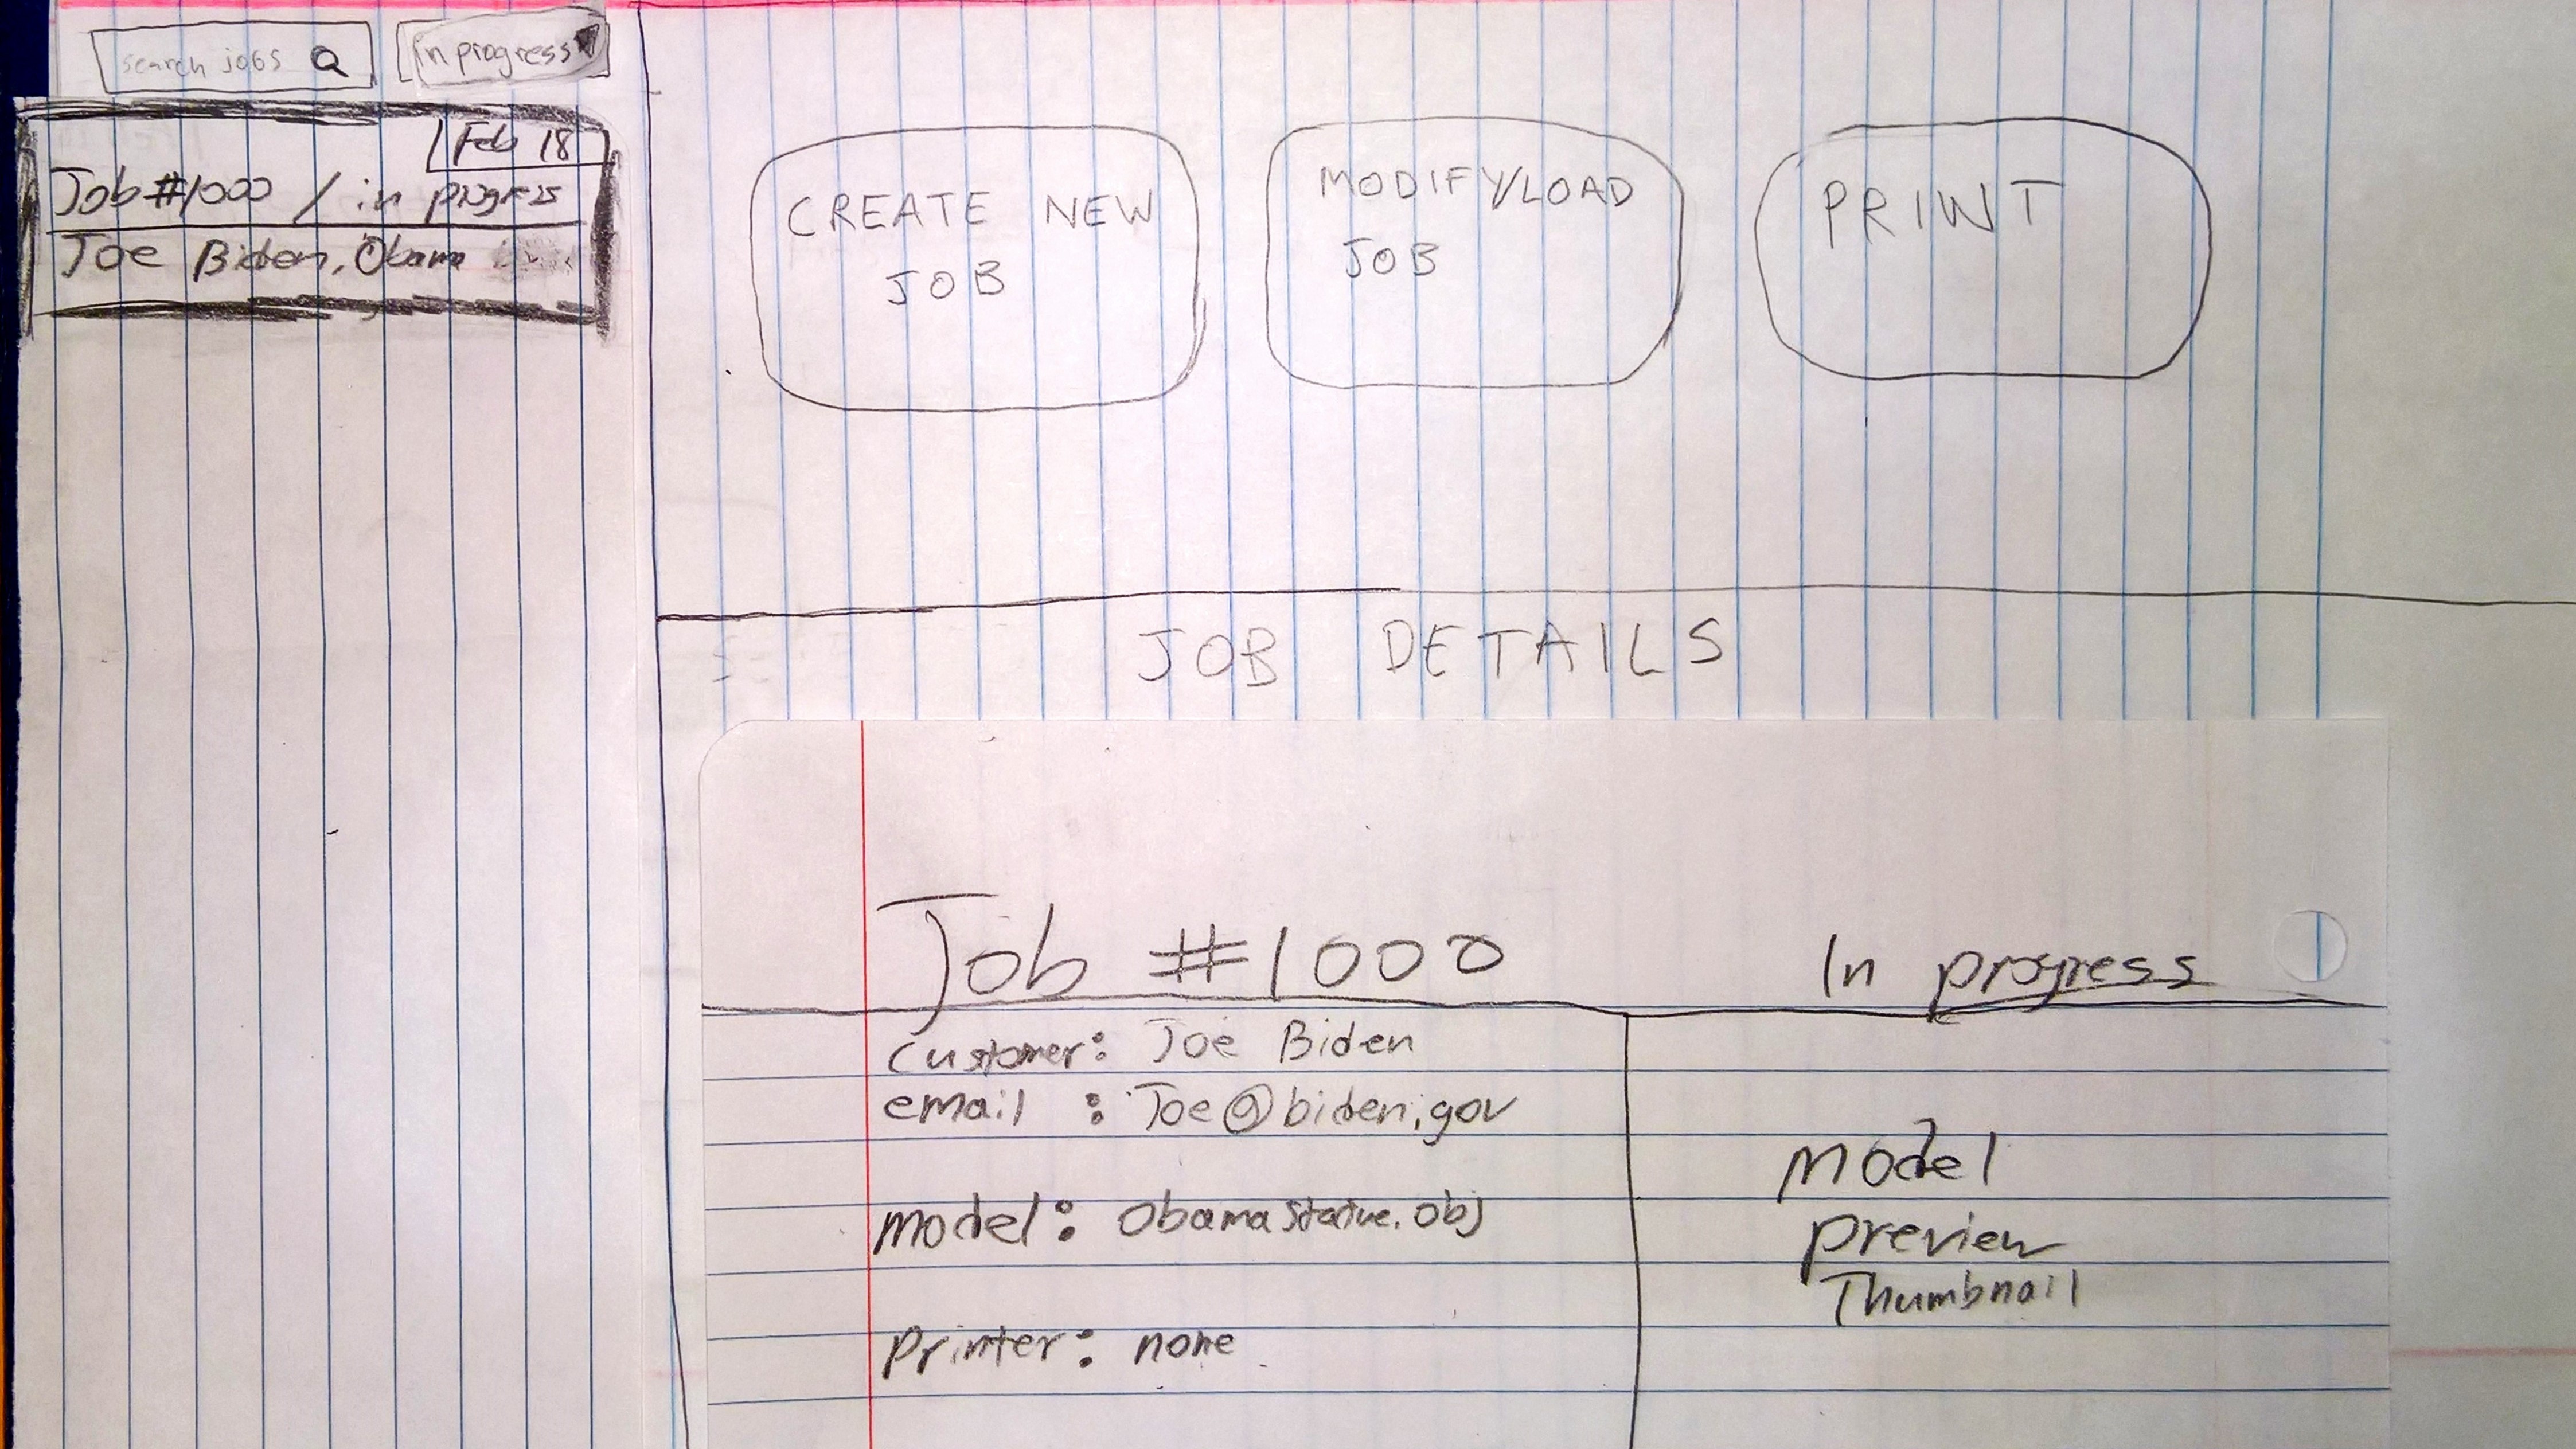 search jobs
in progress
Feb 18
Job #1000 / in progress
Joe Biden, Obama
CREATE NEW
JOB
MODIFY/LOAD
JOB
PRINT
JOB DETAILS
Job #1000
In progress
Customer: Joe Biden
email : Joe@biden.gov
model: Obama Statue.obj
Printer: none
Model
preview
Thumbnail